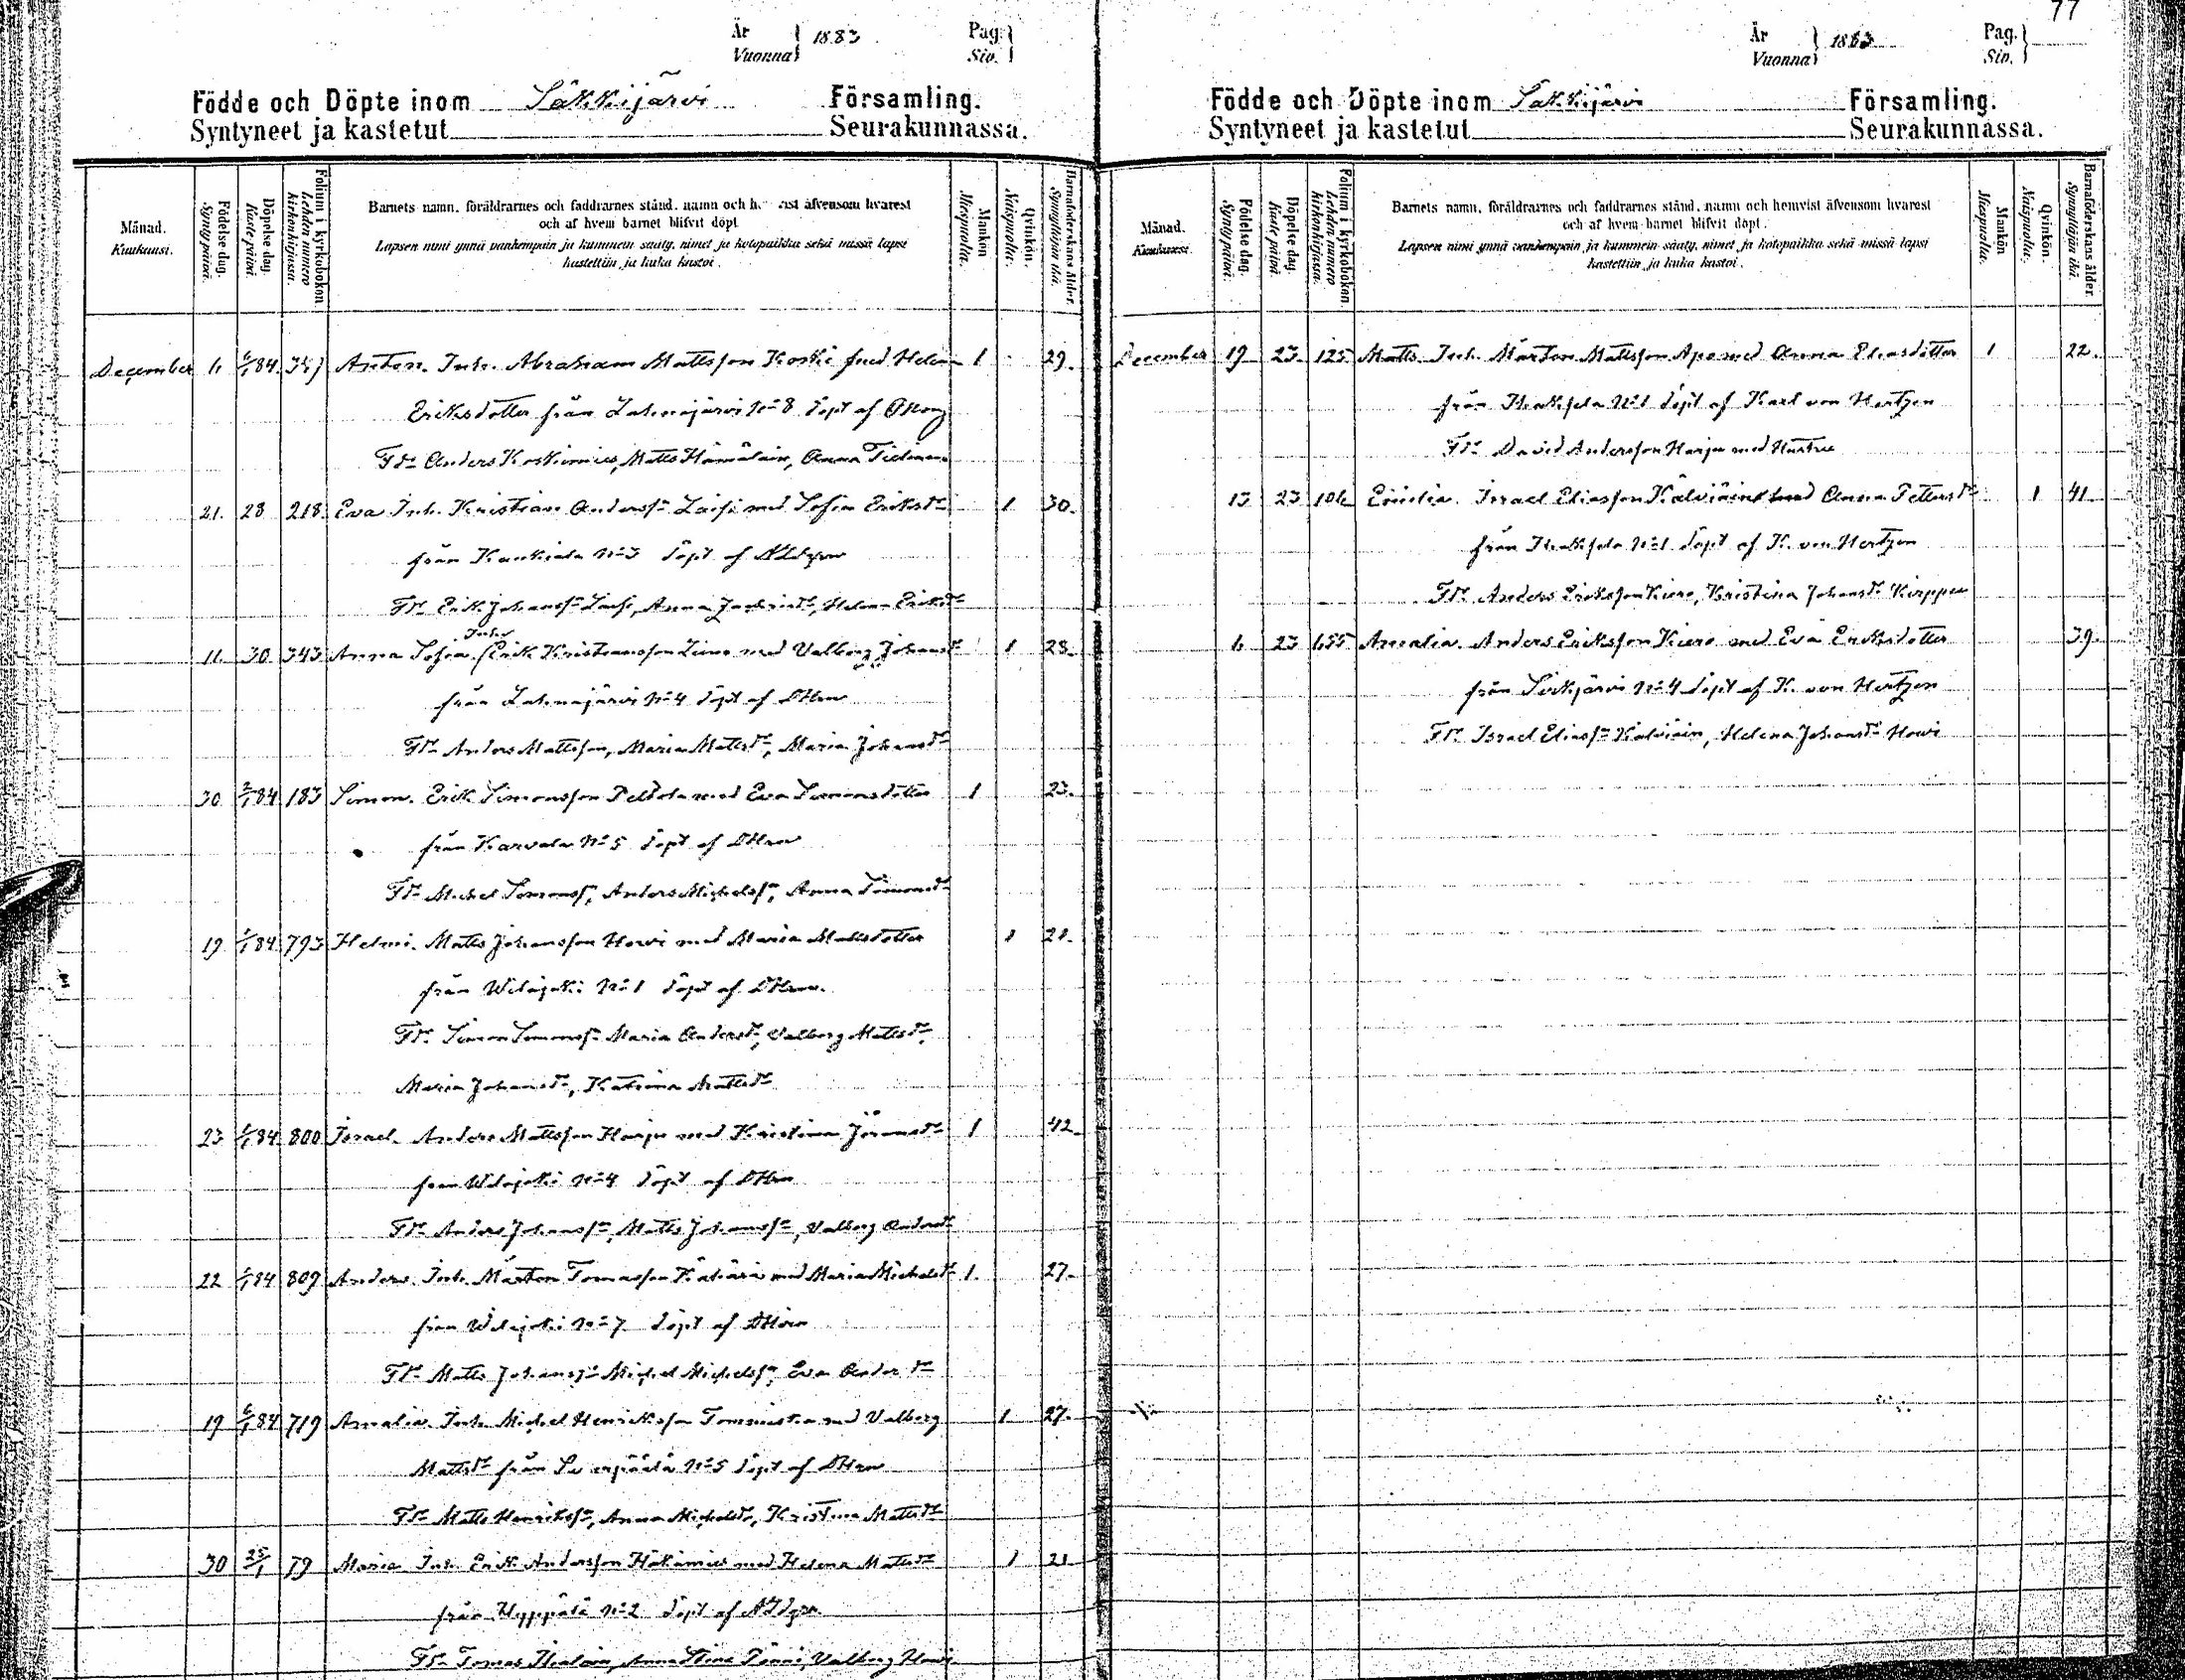 77
År Vuonna } 1883. Pag. Siv. }
Födde och Döpte inom Säkkijärvi Församling.
Syntyneet ja kastetut Seurakunnassa.
Månad. Kuukausi.
Födelse dag. Syntypäivä.
Döpelse dag. Kastepäivä.
Folium i kyrkobokon. Lehden numero kirkonkirjassa.
Barnets namn, föräldrarnes och faddrarnes stånd, namn och h ist äfvensom hvarest
och af hvem barnet blifvit döpt
Lapsen nimi ynnä vanhempain ja kummein sääty, nimet ja kotopaikka sekä missä lapsi
kastettiin ja kuka kastoi.
Mankön Miespuolia.
Qvinkön. Naispuolia.
Barnaföderskans ålder. Synnyttäjän ikä.
December 6 6/1 84 Anton. Inh. Abraham Mattsson Koski med Helena 1 29.
Eriksdotter från Lahnajärvi No 8 döpt af
Fdr Anders Koskimies, Matts Hämäläin, Anna
21. 28 218. Eva Inh. Kristian Anderss. Laihi med Sofia Eriksdr 1 30.
från Kaukiala No 3 döpt af
Fdr Erik Johanss. Anna Helena Eriksdr
11. 30 343 Anna Sofia. Inh. Erik Kristiansson Limo med Valborg Johansdr 1 28.
från Lahnajärvi No 4 döpt af
Fdr Anders Mattsson, Maria Mattsdr, Maria Johansdr
30. 84 183 Simon. Erik Simonsson Peltola med Eva Simonsdotter 1 23.
från Karvala No 5 döpt af
Fdr Michel Simonss. Anders Michelss. Anna Simonsdr
19. 84 793 Helmi. Matts Johansson Howi med Maria Mattsdotter 1 21.
från Wilajoki No 1 döpt af
Fdr Simon Simonss. Maria Andersdr, Valborg Mattsdr,
Maria Johansdr, Katrina Mattsdr
23 84 800 Israel. Anders Mattsson Harju med Kristina Jöransdr 1 42.
från Wilajoki No 4 döpt af
Fdr Anders Johanss. Matts Johanss. Valborg Andersdr
22 84 809 Anders. Inh. Mårten Tomasson med Maria Michelsdr 1. 27.
från Wilajoki No 7 döpt af
Fdr Matts Johanss. Michel Michelss. Eva Andersdr
19 6/1 84 719 Amalia. Inh. Michel Henriksson Tommiska med Valborg 1. 27.
Mattsdr från No 5 döpt af
Fdr Matts Henrikss. Anna Michelsdr, Kristina Mattsdr
30 25/1 79 Maria. Inh. Erik Andersson Häkämies med Helena Mattsdr 1 21
från Hyppälä No 2 döpt af
Fdr Tomas Anna Stina Valborg Howi
År Vuonna } 1883 Pag. Siv. }
Födde och Döpte inom Säkkijärvi Församling.
Syntyneet ja kastetut Seurakunnassa.
Månad. Kuukausi.
Födelse dag. Syntypäivä.
Döpelse dag. Kastepäivä.
Folium i kyrkobokon. Lehden numero kirkonkirjassa.
Barnets namn, föräldrarnes och faddrarnes stånd, namn och hemvist äfvensom hvarest
och af hvem barnet blifvit döpt.
Lapsen nimi ynnä vanhempain ja kummein sääty, nimet ja kotopaikka sekä missä lapsi
kastettiin ja kuka kastoi.
Mankön Miespuolia.
Qvinkön. Naispuolia.
Barnaföderskans ålder. Synnyttäjän ikä.
December 19 23. 125 Matts. Inh. Mårten Mattsson Apo med Anna Eliasdotter 1 22.
från No 1 döpt af Karl von Hertzen
Fdr David Andersson Harju med Hustru
13 23 106 Emilia. Israel Eliasson Kälviäinen med Anna Pettersdr 1 41.
från No 1 döpt af K. von Hertzen
Fdr Anders Eriksson Kiero, Kristina Johansdr Kirppu
6 23 655 Amalia. Anders Eriksson Kiero med Eva Eriksdotter 39.
från Sirkjärvi No 4 döpt af K. von Hertzen
Fdr Israel Eliass. Kälviäin, Helena Johansdr Howi